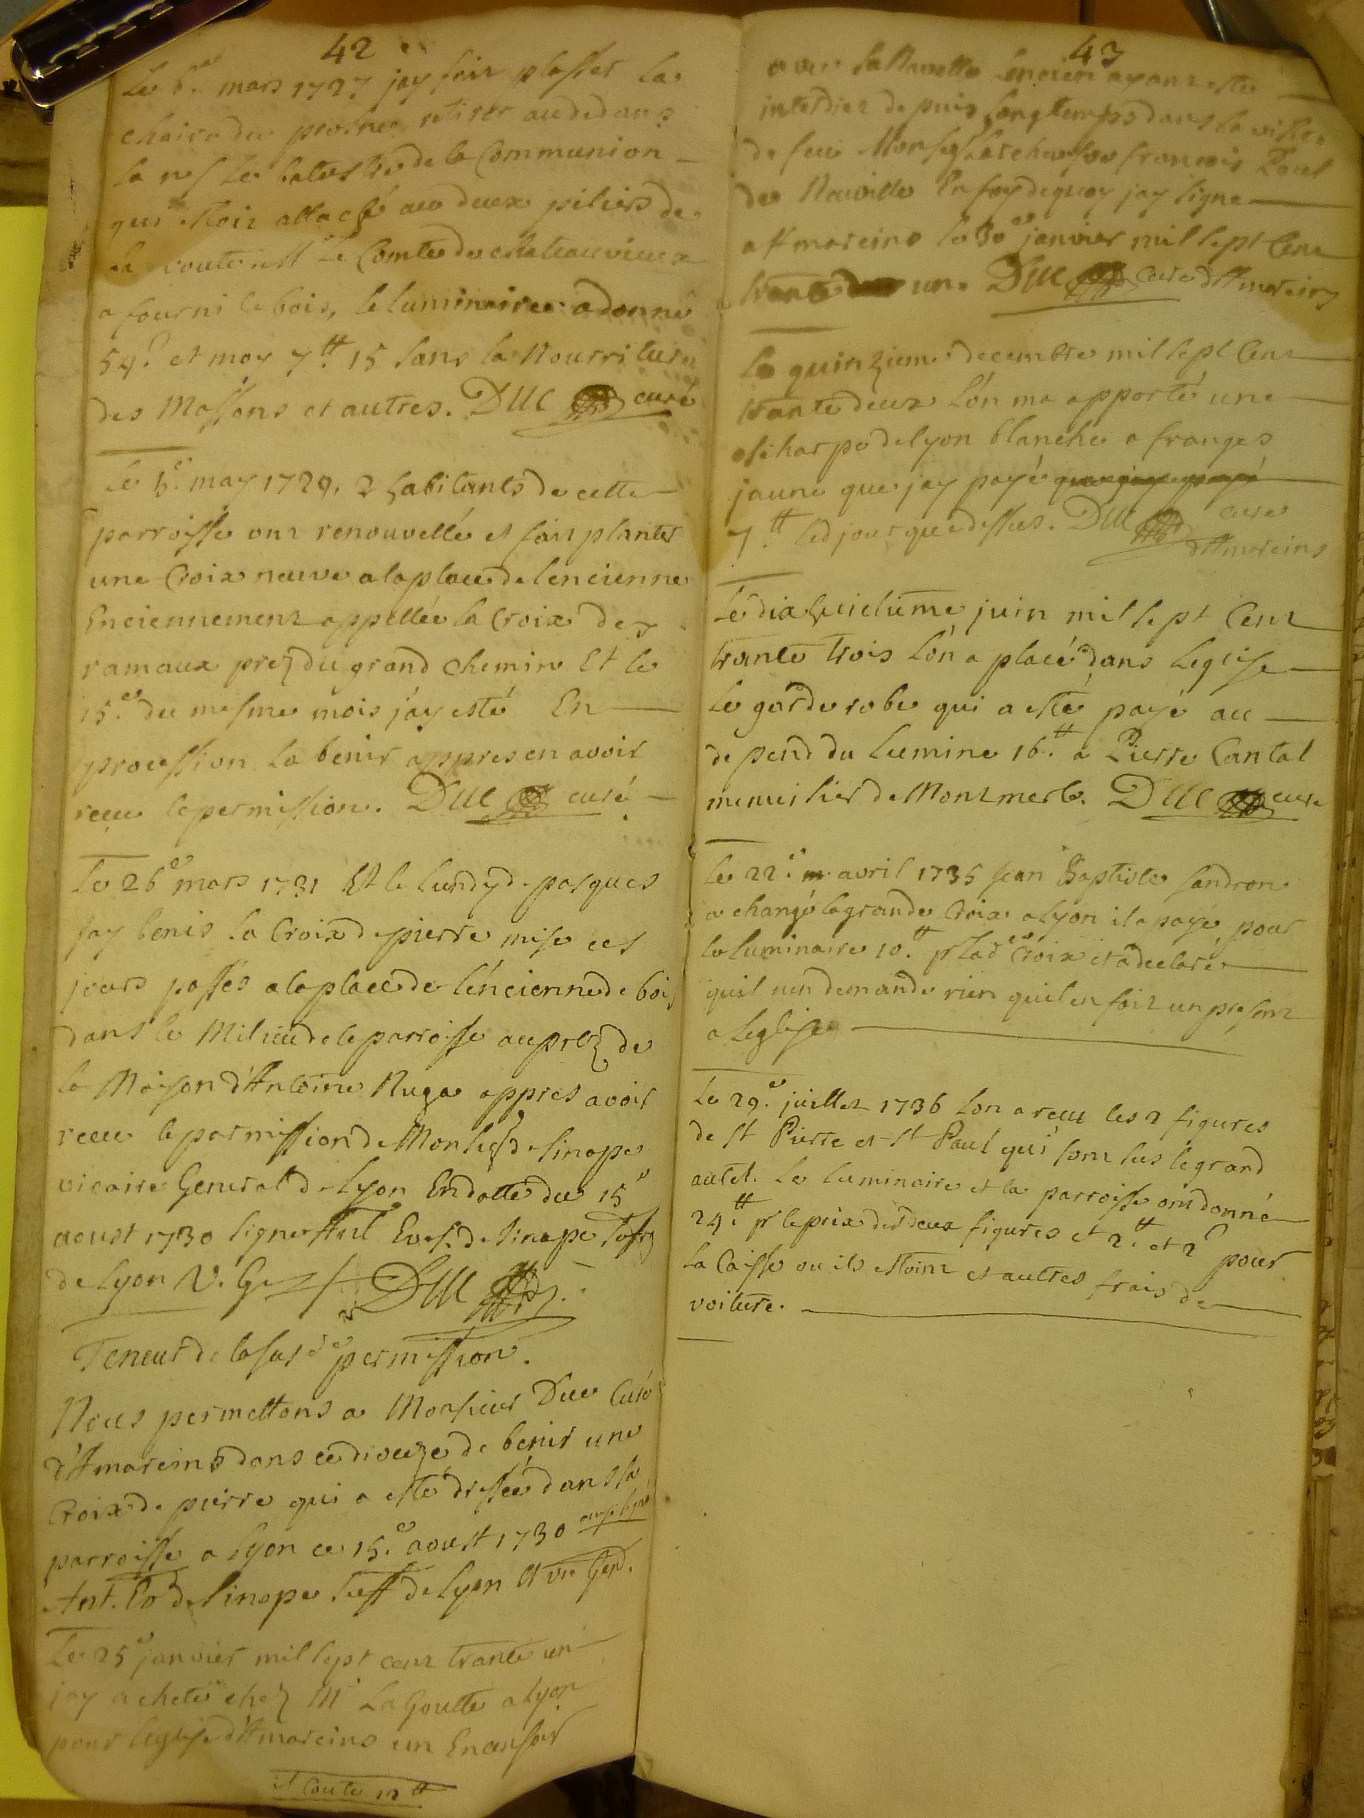 42
Le 6e. mars 1727 jay fait plasser la
chaire du prosne, retirer audedans
la nef le balustre de la Communion
qui estoit attaché au deux piliers de
la voute et Mr Le Comte de chateauvieux
a fourni le bois, le luminaire a donné
54s et moy 7tt. 15 sans la Nourriture
des Massons et autres. DUC curé
Le 5e. may 1729, 2 habitants de cette
parroisse ont renouvellé et fait planter
une Croix neuve a la place de lencienne
Enciennement appellée la Croix des
ramaux prez du grand chemin Et le
15e. du mesme mois jay esté En
procession la benir appres en avoir
receu la permission. DUC curé
Le 26e mars 1731 Et le Lundy de pasques
jay benis la Croix de pierre mise ces
jours passés a la place de l'encienne de bois
dans le Milieu de la parroisse auprez de
la Maison d'Antoine Ruga appres avoir
receu la permission de Monsieur de Sinope
vicaire General de Lyon En datte du 15e
aoust 1730 signé Ant. Eves. de Sinope suff
de Lyon V. G. DUC
Teneur de la susde permission.
Nous permettons a Monsieur Duc Curé
d'Amareins dans ce diocèze de benir une
Croix de pierre qui a esté dressée dans sa
parroisse a Lyon ce 15e. aoust 1730
Ant. Ev de Sinope Suff de Lyon et vic Gen.
Le 25e janvier mil sept cent trante un
jay acheté chez Mr La Goutte a Lyon
pour leglise d'Amareins un Encensoir
il coute 12tt
43
avec sa Navette Lencien ayant esté
interdict depuis longtemps dans la visite
de feu Monsg Larchevesque francois Paul
de Neuville En foy de quoy jay signé
a Amareins le 30e janvier mil sept Cent
trante un. DUC curé d'Amareins
Le quinzieme decembre mil sept Cent
trante deux L'on ma apporté une
echarpe de lyon blanche a franges
jaune que jay payé
7tt. led jour que dessus. DUC curé
d'Amareins
Le dix huictieme juin mil sept Cent
trante trois L'on a placé dans Leglise
Le garde robe qui a esté payé au
depend du Lumine 16tt. a Pierre Cantal
menuisier de Montmerle. DUC curé
Le 22e. avril 1735 Jean Baptiste sandron
a changé la grande Croix a Lyon il a payé pour
le luminaire 10tt pr lade Croix et a declaré
quil nen demande rien quil en fait un present
a Leglise
Le 29e. juillet 1736 Lon a receu les 2 figures
de St Pierre et St Paul qui sont sus le grand
autel. Le Luminaire et la parroisse ont donné
24tt. pr le prix des deux figures et 2tt. et 2s pour
la Caisse ou ils estoint et autres frais de
voiture.